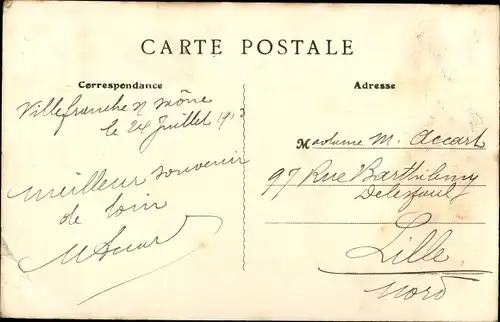 CARTE POSTALE
Correspondance
Villefranche s/ Saône
le 24 Juillet 191
meilleur souvenir
de loin
Adresse
Madame M. Accart
97 Rue Barthilemy
Delespaul
Lille
Nord